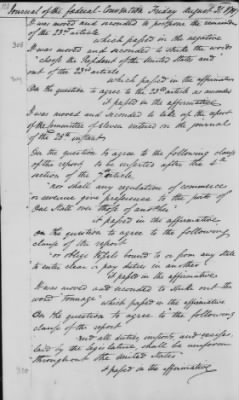 Journal of the federal Convention Friday August 31. 1787
It was moved and seconded to postpone the remainder
of the 23rd article
which passed in the negative
308
It was moved and seconded to strike the words
"choose the President of the United States and"
out of the 23rd article
309
which passed in the affirmative
On the question to agree to the 23rd article as amended
it passed in the affirmative
It was moved and seconded to take up the report
of the Committee of eleven entered on the journal
of the 28th instant
On the question to agree to the following clause
of the report, to be inserted after the 4th
section of the 7th article
"nor shall any regulation of commerce
or revenue give preference to the ports of
One State over those of another"
it passed in the affirmative
On the question to agree to the following
clause of the report
"or oblige Vessels bound to or from any State
to enter clear or pay duties in another"
it passed in the affirmative
It was moved and seconded to strike out the
word "tonnage" which passed in the affirmative
On the question to agree to the following
clause of the report
"and all duties, imposts, and excises,
laid by the legislature, shall be uniform
throughout the United States"
310
it passed in the affirmative